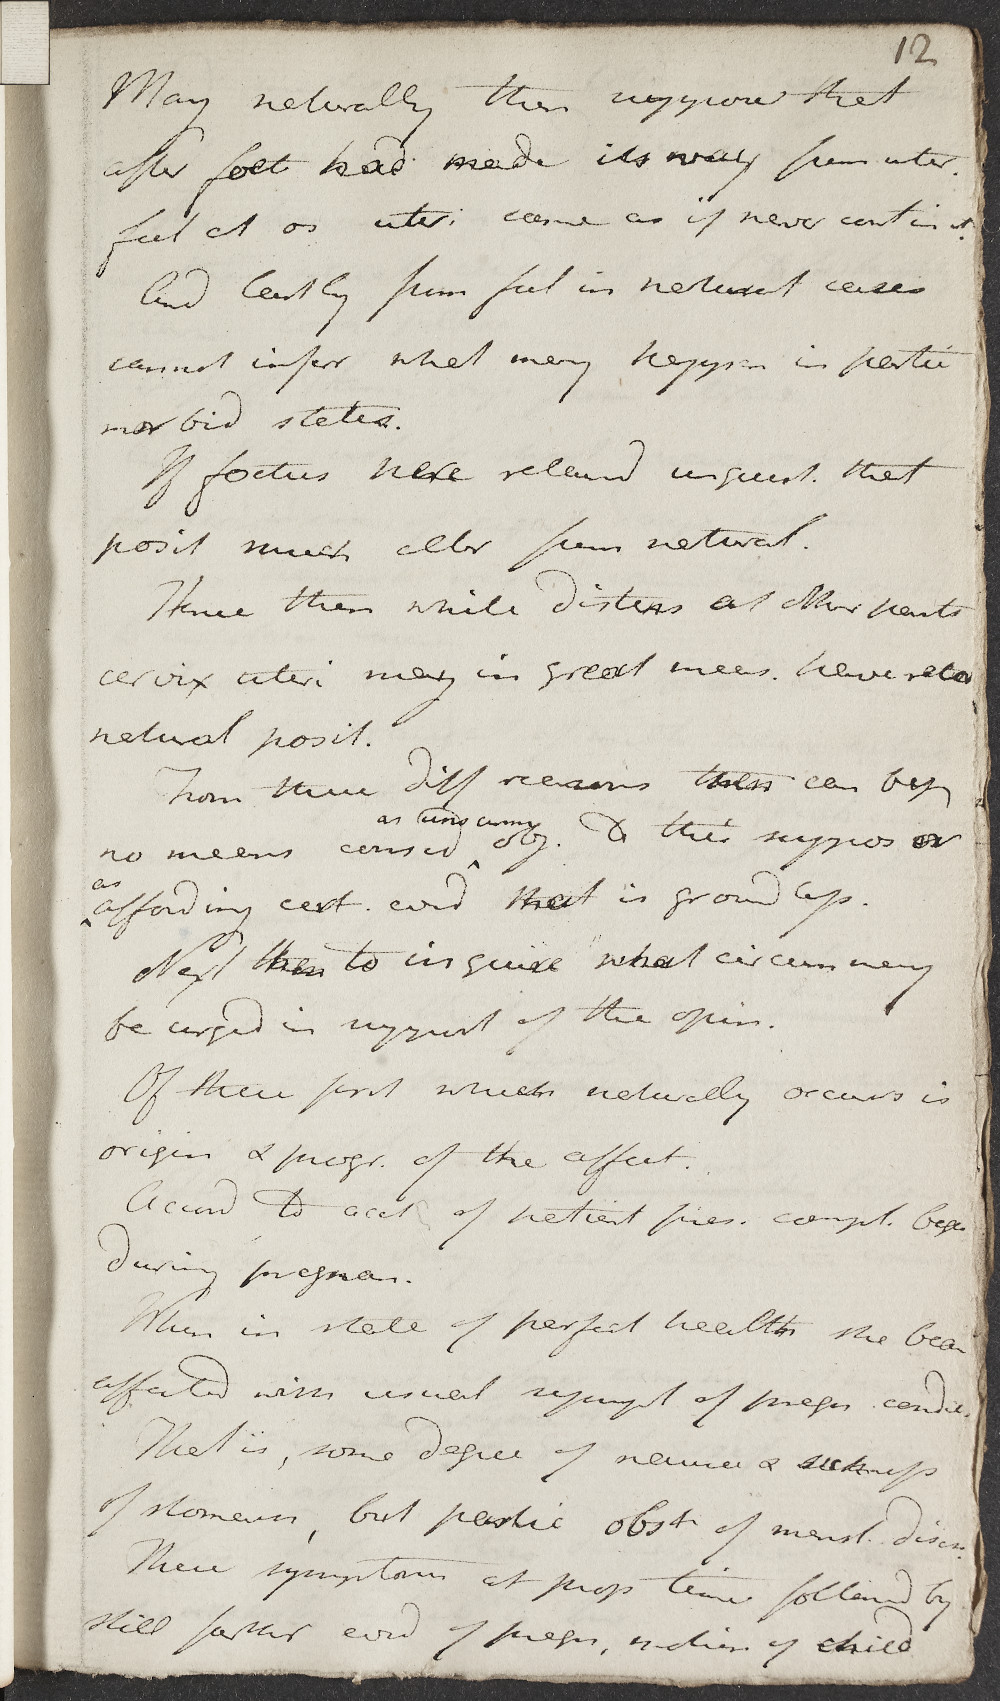 12
May naturally then suppose that
after foet had made its way from uter.
feel at os uteri same as if never cont in it.
And lastly from feel in natural cases
cannot infer what may happen in partic
morbid states.
If foetus here retaind unquest. that
posit much alter from natural.
Hence then while distens at other parts
cervix uteri may in great meas. have reta
natural posit.
From these diff reasons then can by
no means consid as unsurm obj. to this suppos or
as affording cert. evid that is groundless.
Next then to inquire what circum may
be urged in support of the opin.
Of these first which naturally occurs is
origin & progr. of the affect.
Accord to acct of patient pres. compl. bega
during pregnan.
When in state of perfect health she beca
affected with usual sympt of pregn condit.
That is, some degree of nausea & sickness
of stomach, but partic obstr of menst. disch.
These symptoms at prop time followd by
still farther evid of pregn, motion of child